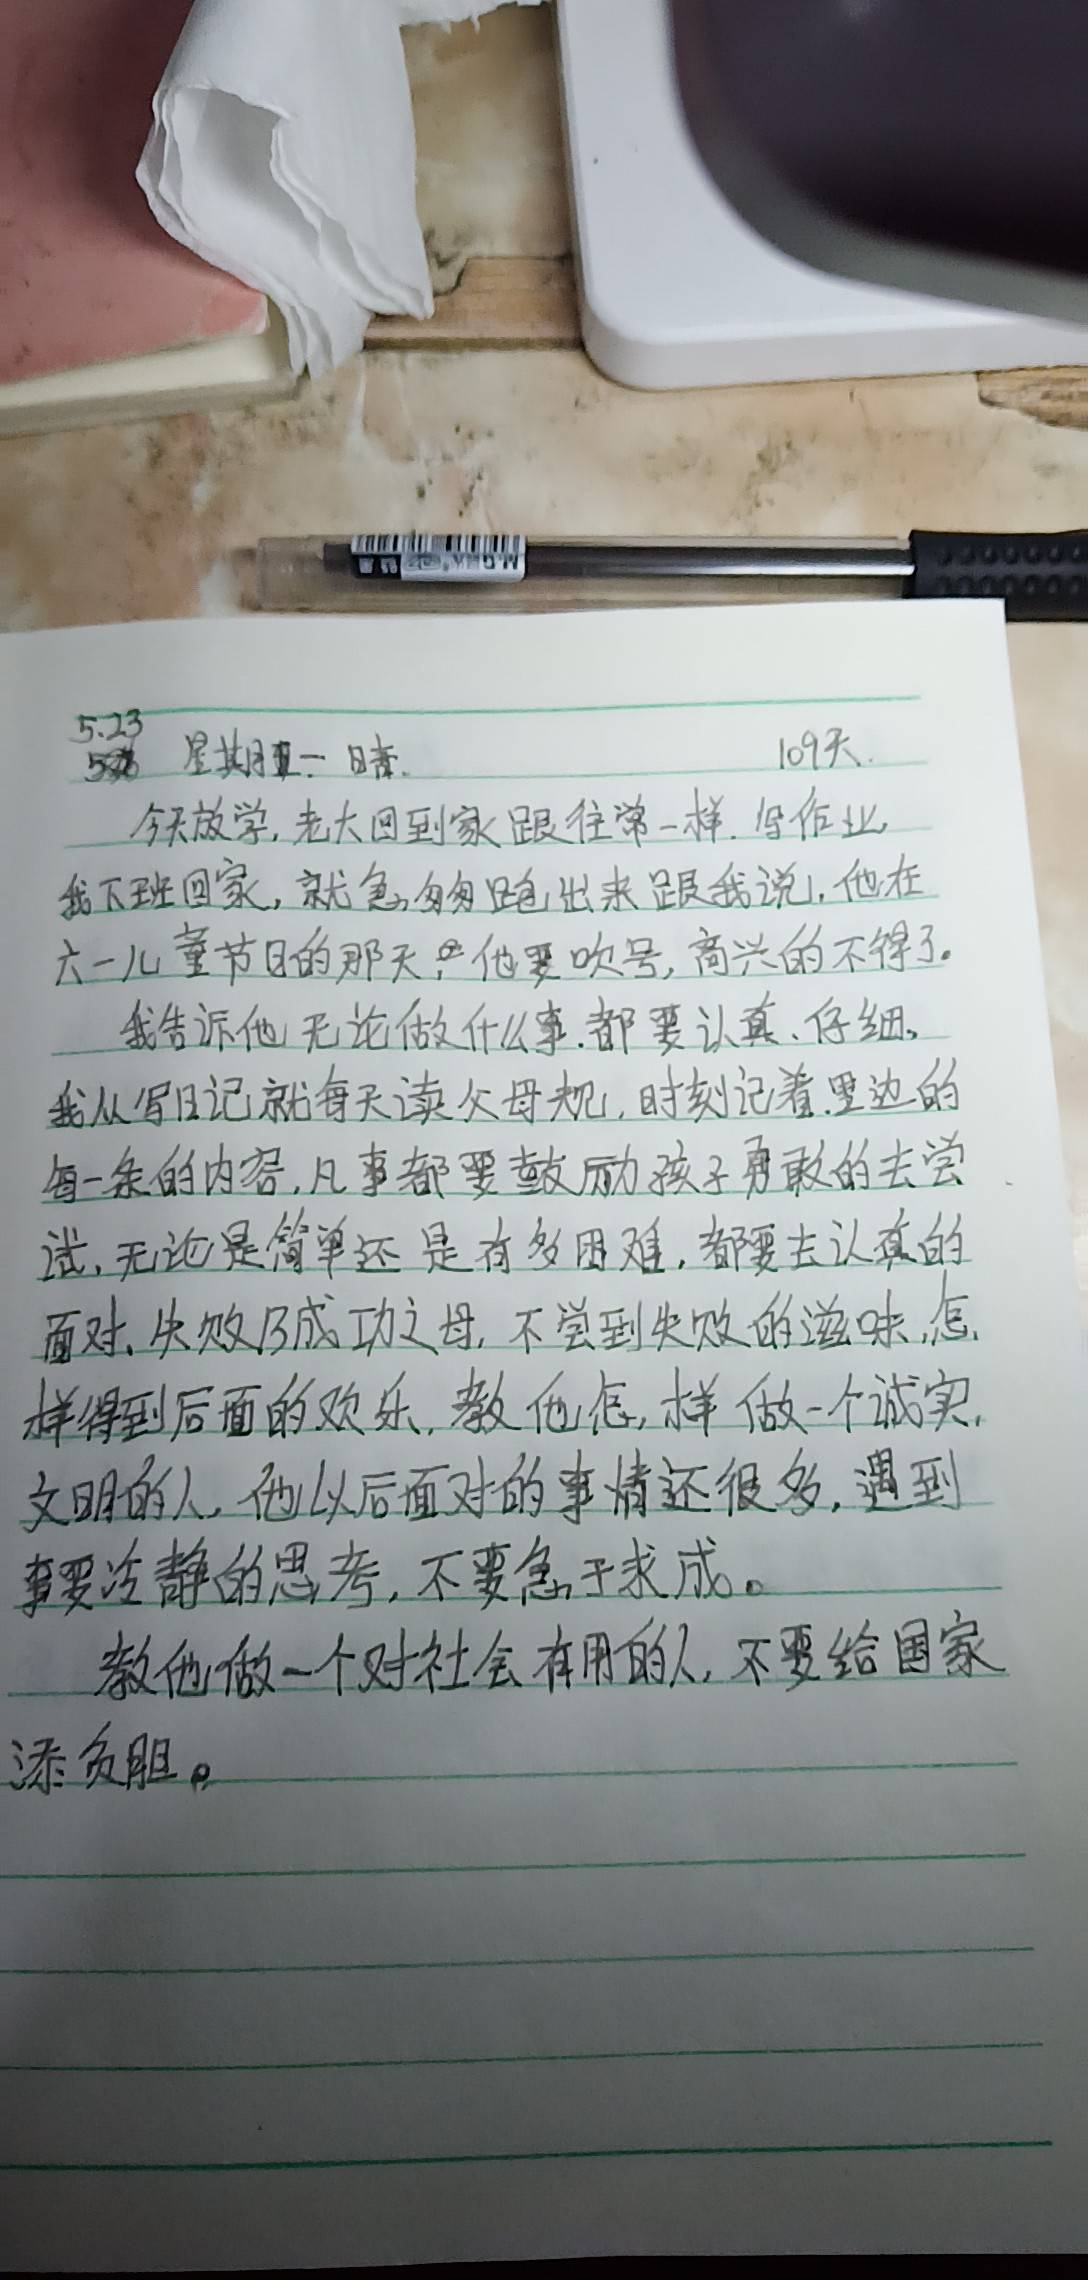 5.23
星期一 晴. 109天.
今天放学,老大回到家跟往常一样.写作业
我下班回家,就急匆匆跑出来跟我说,他在
六一儿童节日的那天,他要吹号,高兴的不得了。
我告诉他无论做什么事.都要认真、仔细。
我从写日记就每天读父母规,时刻记着里边的
每一条的内容,凡事都要鼓励孩子勇敢的去尝
试,无论是简单还是有多困难,都要去认真的
面对,失败乃成功之母,不尝到失败的滋味,怎
样得到后面的欢乐,教他怎,样做一个诚实,
文明的人,他以后面对的事情还很多,遇到
事要冷静的思考,不要急于求成。
教他做一个对社会有用的人,不要给国家
添负胆。
M&G
0.5